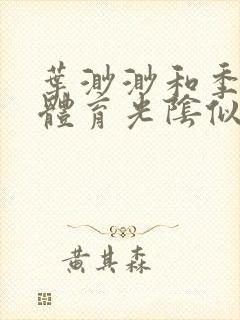 葉渺渺和季
體育光陰似
黃其森